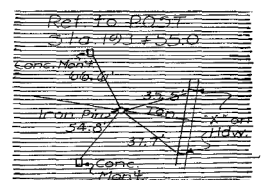 Ref. to P.O.S.T.
Sta 193 + 55.0
Conc. Mon't
66.6'
35.5'
Iron Pin
"X" on
Hdw.
54.8'
37.7'
Conc.
Mon't